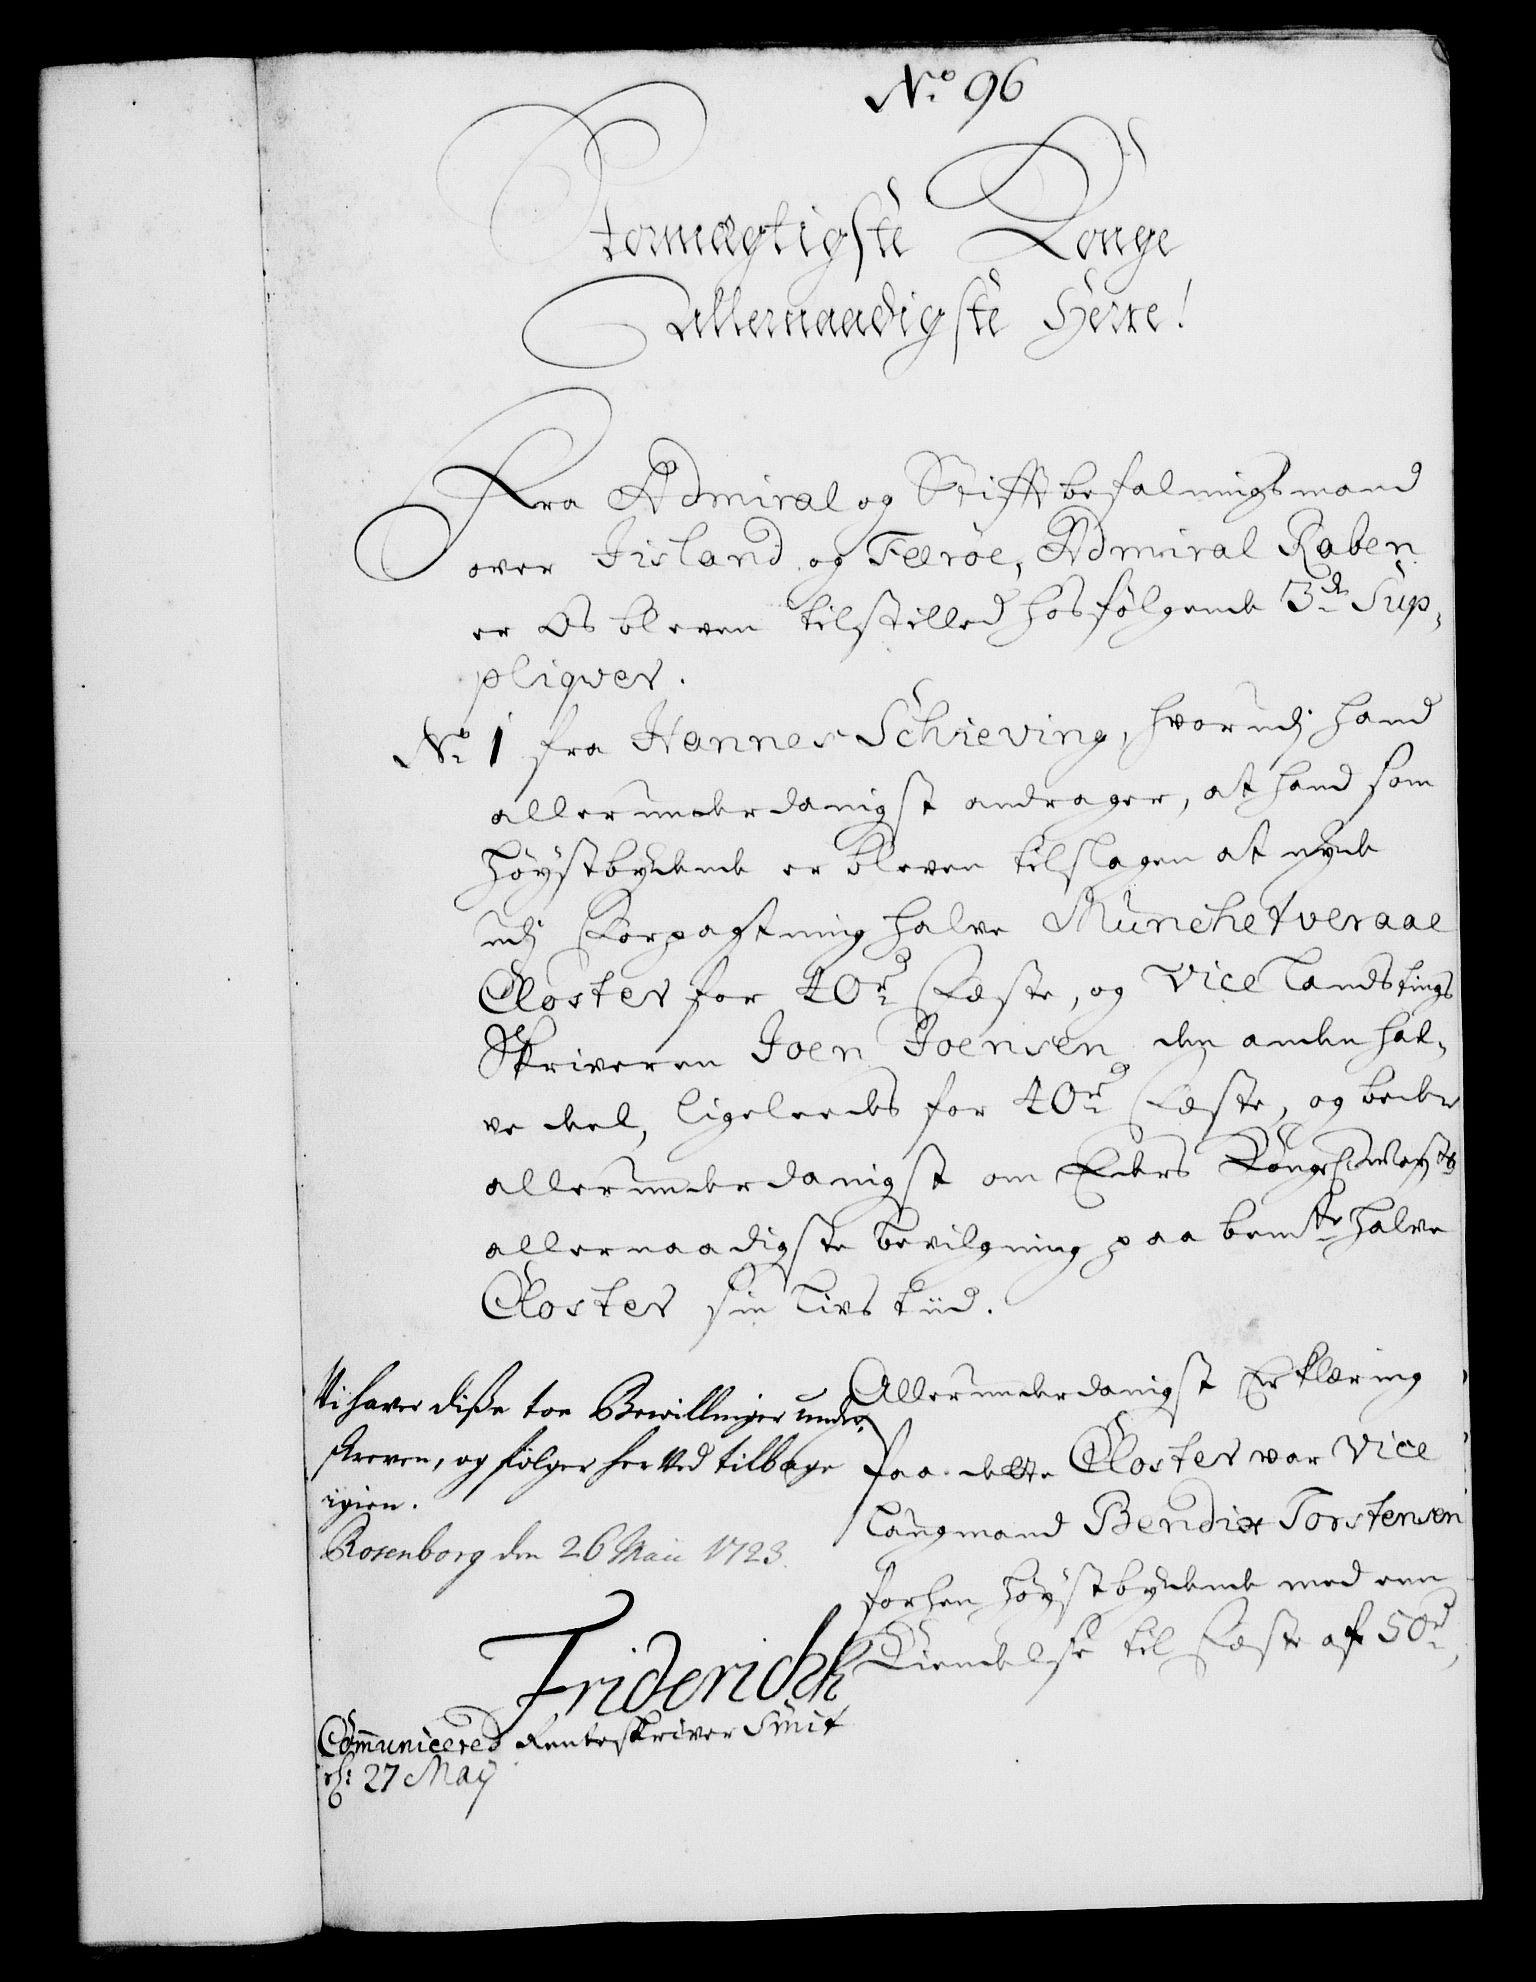 No 96
Stormægtigste Konge
allernaadigste Herre!
Fra Admiral og Stiftbefalningsmand
over Iisland og Færöe, Admiral Raben
er Os bleven tilstilled hosfølgende 3de Sup-
pliqver.
No 1 fra Hannes Schieving, hvorudj hand
allerunderdanigst andrager, at hand som
høystbydende er bleven tilslagen at nyde
udj Forpagtning halve Münchetveraae
Closter for 40rd Fæste, og Vice Landstings
Skriveren Joen Joensen den anden hal-
ve deel, ligeleedes for 40rd Fæste, og beder
allerunderdanigst om Eders Kongel: Mayts
allernaadigste bevilgning paa bemte halve
Closter sin Livs tiid.
Allerunderdanigst Erklæring
Paa dette Closter var Vice
Laugmand Bendix Torstensen
forhen høystbydende med een
Kiendelse til Fæste af 50rd,
Vi haver diße toe Bewillinger under-
skreven, og følger her Ved tilbage
igien.
Rosenborg den 26 Maii 1723.
Friderich
Communicered Renteskriver Smit
d: 27 Maij